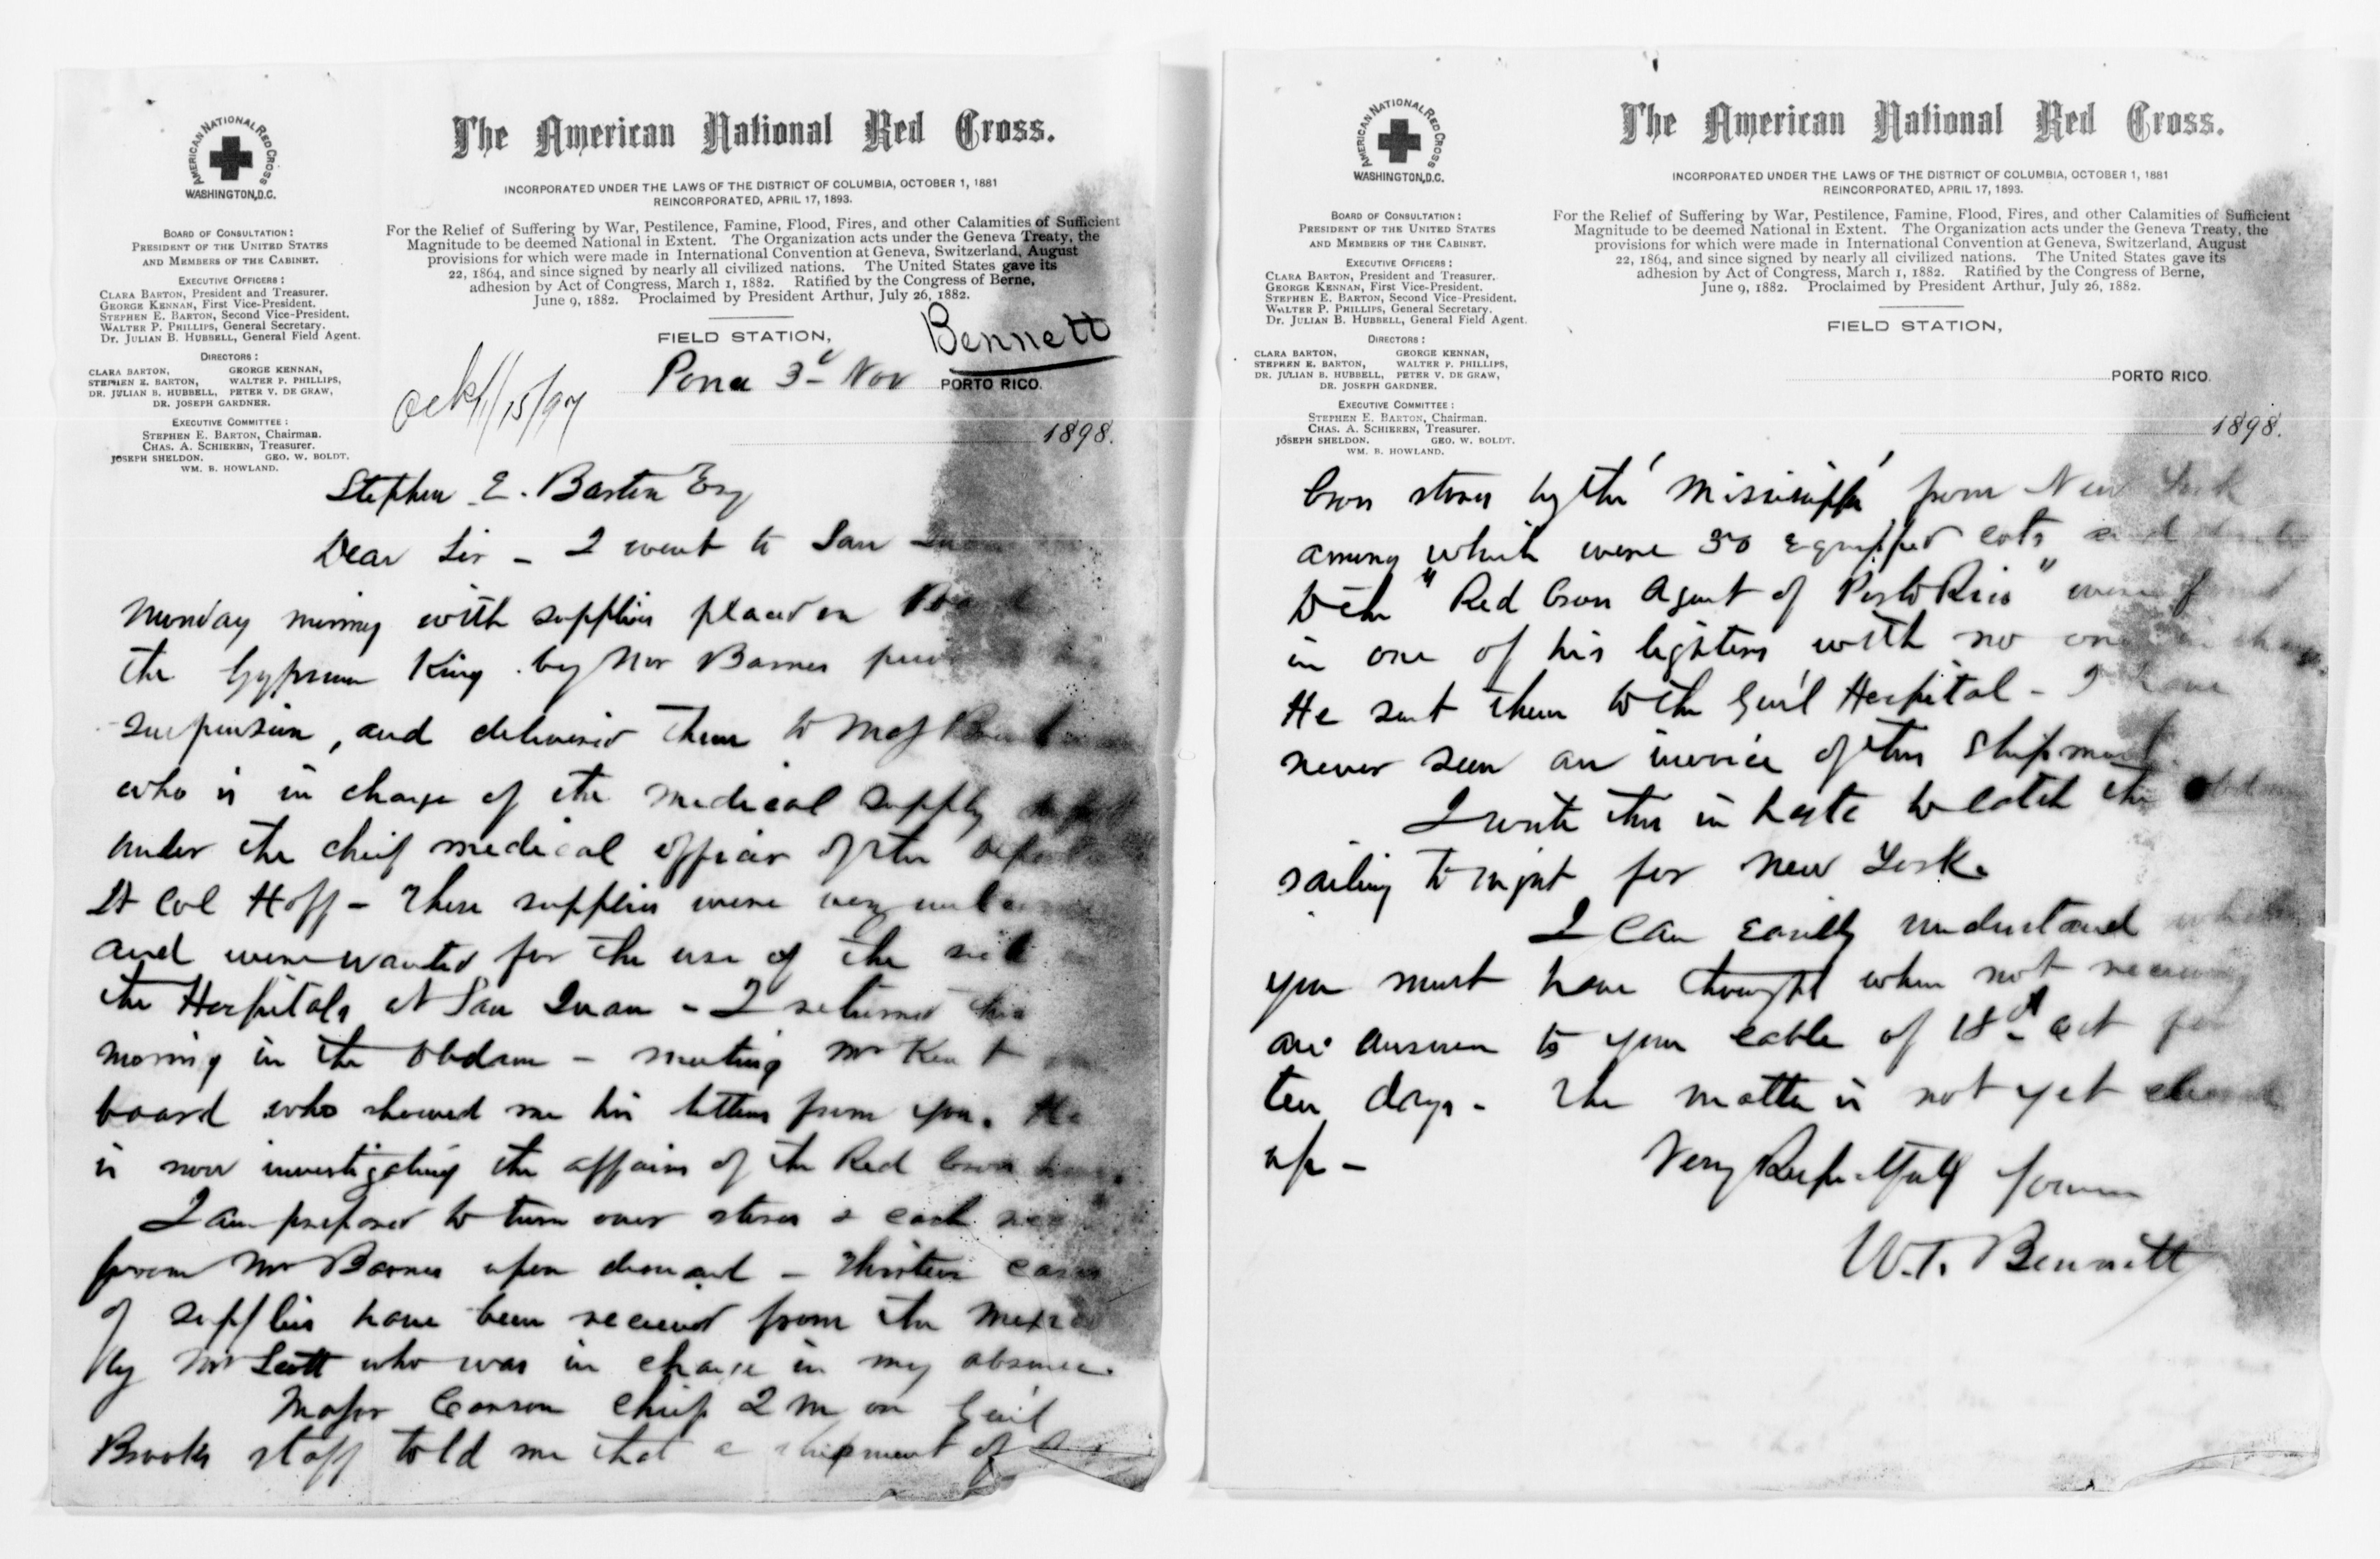 AMERICAN NATIONAL RED CROSS
WASHINGTON, D.C.
The American National Red Cross.
INCORPORATED UNDER THE LAWS OF THE DISTRICT OF COLUMBIA, OCTOBER 1, 1881
REINCORPORATED, APRIL 17, 1893.
For the Relief of Suffering by War, Pestilence, Famine, Flood, Fires, and other Calamities of Sufficient
Magnitude to be deemed National in Extent. The Organization acts under the Geneva Treaty, the
provisions for which were made in International Convention at Geneva, Switzerland, August
22, 1864, and since signed by nearly all civilized nations. The United States gave its
adhesion by Act of Congress, March 1, 1882. Ratified by the Congress of Berne,
June 9, 1882. Proclaimed by President Arthur, July 26, 1882.
BOARD OF CONSULTATION:
PRESIDENT OF THE UNITED STATES
AND MEMBERS OF THE CABINET.
EXECUTIVE OFFICERS:
CLARA BARTON, President and Treasurer.
GEORGE KENNAN, First Vice-President.
STEPHEN E. BARTON, Second Vice-President.
WALTER P. PHILLIPS, General Secretary.
Dr. JULIAN B. HUBBELL, General Field Agent.
DIRECTORS:
CLARA BARTON, GEORGE KENNAN,
STEPHEN E. BARTON, WALTER P. PHILLIPS,
DR. JULIAN B. HUBBELL, PETER V. DE GRAW,
DR. JOSEPH GARDNER.
EXECUTIVE COMMITTEE:
STEPHEN E. BARTON, Chairman.
CHAS. A. SCHIEREN, Treasurer.
JOSEPH SHELDON. GEO. W. BOLDT.
WM. B. HOWLAND.
FIELD STATION,
Bennett
Ponce 3d Nov PORTO RICO.
ack 11/15/97
1898.
Stephen E. Barton Esq
Dear Sir - I went to San Juan
Monday morning with supplies placed on board
the Gypsum King by Mr Barnes
suspension, and delivered them to Maj
who is in charge of the medical supply depot
under the chief medical officer of the
Lt Col Hoff - These supplies were very welcome
and were wanted for the use of the sick
the Hospitals at San Juan - I returned this
morning in the Obdam - meeting Mr Kent on
board who showed me his letters from you. He
is now investigating the affairs of the Red Cross here.
I am prepared to turn over stores & cash
from Mr Barnes upon demand - Thirteen cases
of supplies have been received from the Mexico
by Mr Scott who was in charge in my absence.
Major Carson Chief Q M on Gen'l
Brooks staff told me that a shipment of
AMERICAN NATIONAL RED CROSS
WASHINGTON, D.C.
The American National Red Cross.
INCORPORATED UNDER THE LAWS OF THE DISTRICT OF COLUMBIA, OCTOBER 1, 1881
REINCORPORATED, APRIL 17, 1893.
For the Relief of Suffering by War, Pestilence, Famine, Flood, Fires, and other Calamities of Sufficient
Magnitude to be deemed National in Extent. The Organization acts under the Geneva Treaty, the
provisions for which were made in International Convention at Geneva, Switzerland, August
22, 1864, and since signed by nearly all civilized nations. The United States gave its
adhesion by Act of Congress, March 1, 1882. Ratified by the Congress of Berne,
June 9, 1882. Proclaimed by President Arthur, July 26, 1882.
BOARD OF CONSULTATION:
PRESIDENT OF THE UNITED STATES
AND MEMBERS OF THE CABINET.
EXECUTIVE OFFICERS:
CLARA BARTON, President and Treasurer.
GEORGE KENNAN, First Vice-President.
STEPHEN E. BARTON, Second Vice-President.
WALTER P. PHILLIPS, General Secretary.
Dr. JULIAN B. HUBBELL, General Field Agent.
DIRECTORS:
CLARA BARTON, GEORGE KENNAN,
STEPHEN E. BARTON, WALTER P. PHILLIPS,
DR. JULIAN B. HUBBELL, PETER V. DE GRAW,
DR. JOSEPH GARDNER.
EXECUTIVE COMMITTEE:
STEPHEN E. BARTON, Chairman.
CHAS. A. SCHIEREN, Treasurer.
JOSEPH SHELDON. GEO. W. BOLDT.
WM. B. HOWLAND.
FIELD STATION,
PORTO RICO.
1898.
Cross stores by the 'Mississippi' from New York
among which were 30 equipped cots
to the "Red Cross Agent of Porto Rico" were found
in one of his lighters with no one in charge
He sent them to the Gen'l Hospital - I have
never seen an invoice of this shipment.
I write this in haste to catch the Obdam
sailing to night for New York.
I can easily understand what
you must have thought when not receiving
an answer to your cable of 18th Oct for
ten days - The matter is not yet cleared
up -
Very Respectfully yours
W. T. Bennett